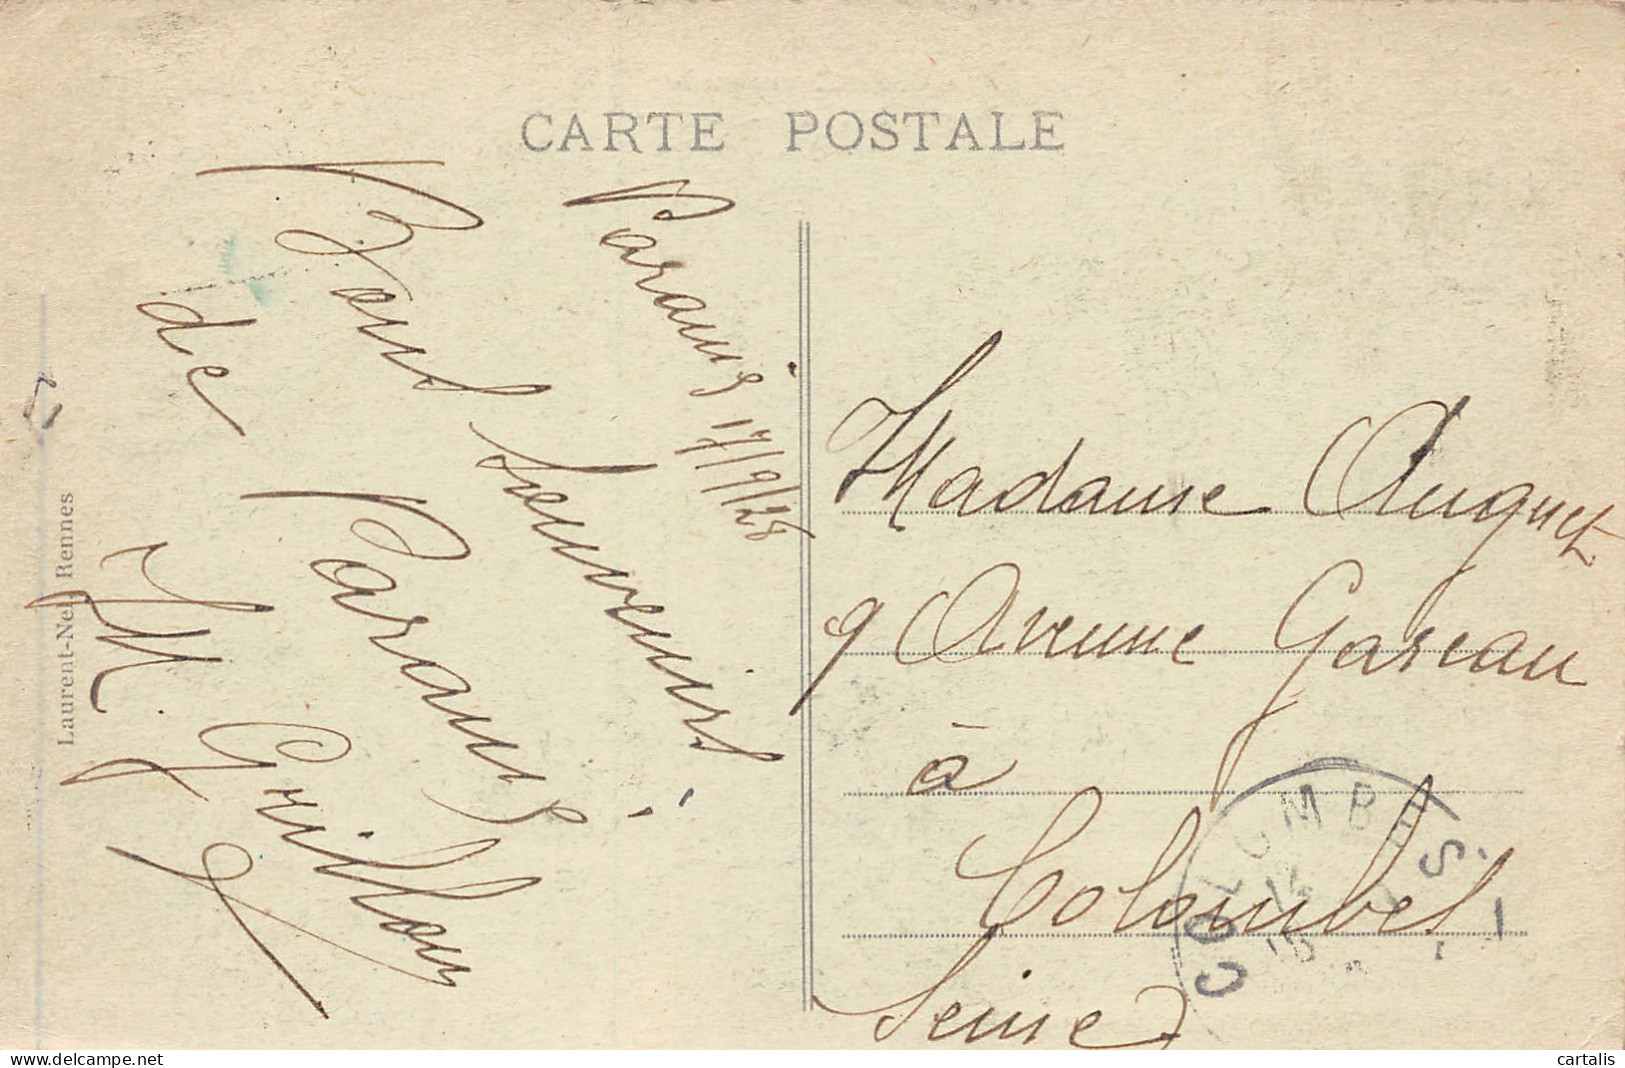 CARTE POSTALE
Paramé 17/9/28
Bons souvenirs
de Paramé
M. Grillon
Madame Auguet
9 Avenue Gareau
à
Colombes
Seine
COLOMBES
Laurent-Nel Rennes
cartalis